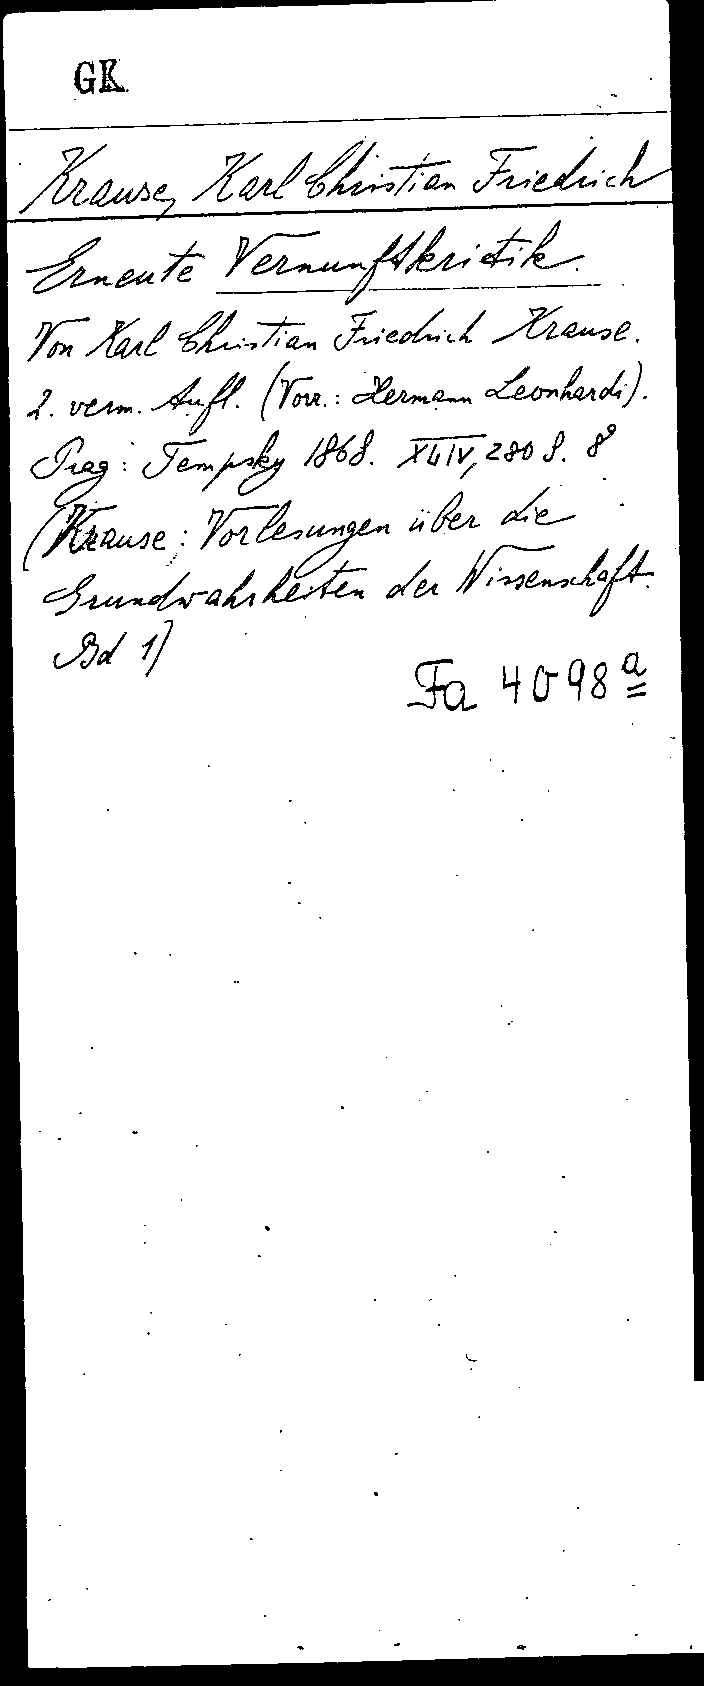 GK
Krause, Karl Christian Friedrich
Erneute Vernunftkritik.
Von Karl Christian Friedrich Krause.
2. verm. Aufl. (Vorr.: Hermann Leonhardi).
Prag: Tempsky 1868. XLIV, 280 S. 8°
(Krause: Vorlesungen über die
Grundwahrheiten der Wissenschaft.
Bd 1)
Fa 4098ª